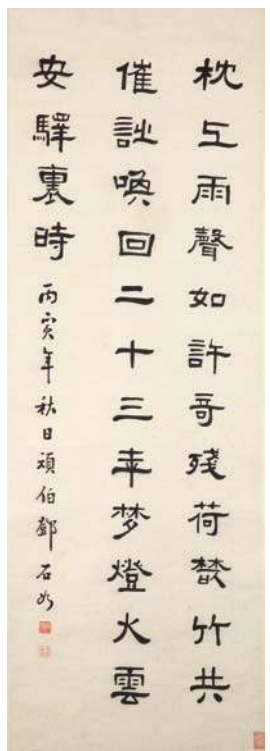 枕上雨聲如許奇殘荷叢竹共
催詩喚回二十三年梦燈火雲
安驛裏時 丙寅年秋日頑伯鄧石如